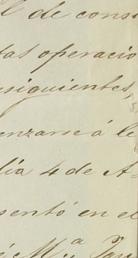 l de cons
tas operacio
siguientes,
enzarse á l
día 4 de A-
sentó en el
é M.ª